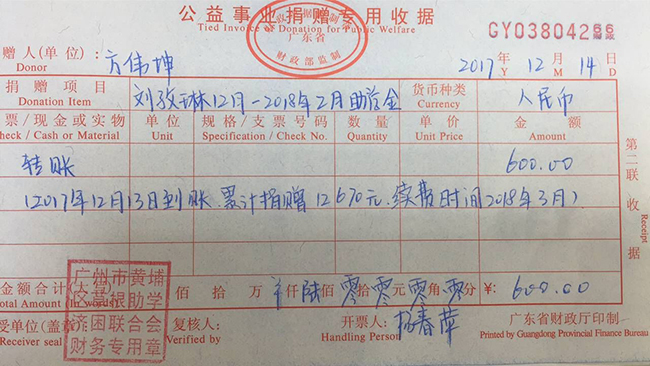 公益事业捐赠专用收据
Tied Invoice of Donation for Public Welfare
广东省
财政部监制
GY03804266
赠人(单位): 方伟坤
Donor
2017 年 12 月 14 日
Y M D
捐赠项目 刘孜琳12月-2018年2月助学金 货币种类 人民币
Donation Item Currency
票/现金或实物 单位 规格/支票号码 数量 单价 金额
Check / Cash or Material Unit Specification / Check No. Quantity Unit Price Amount
转账 600.00
(2017年12月13日到账.累计捐赠12670元.续费时间2018年3月)
第二联 收据
Receipt
金额合计(大写) 佰 拾 万 仟 陆 佰 零 拾 零 元 零 角 零 分 ¥: 600.00
Total Amount (In words)
广州市黄埔
助学
济困联合会
财务专用章
受单位(盖章) 复核人: 开票人: 杨春萍 广东省财政厅印制
Receiver seal Verified by Handling Person Printed by Guangdong Provincial Finance Bureau